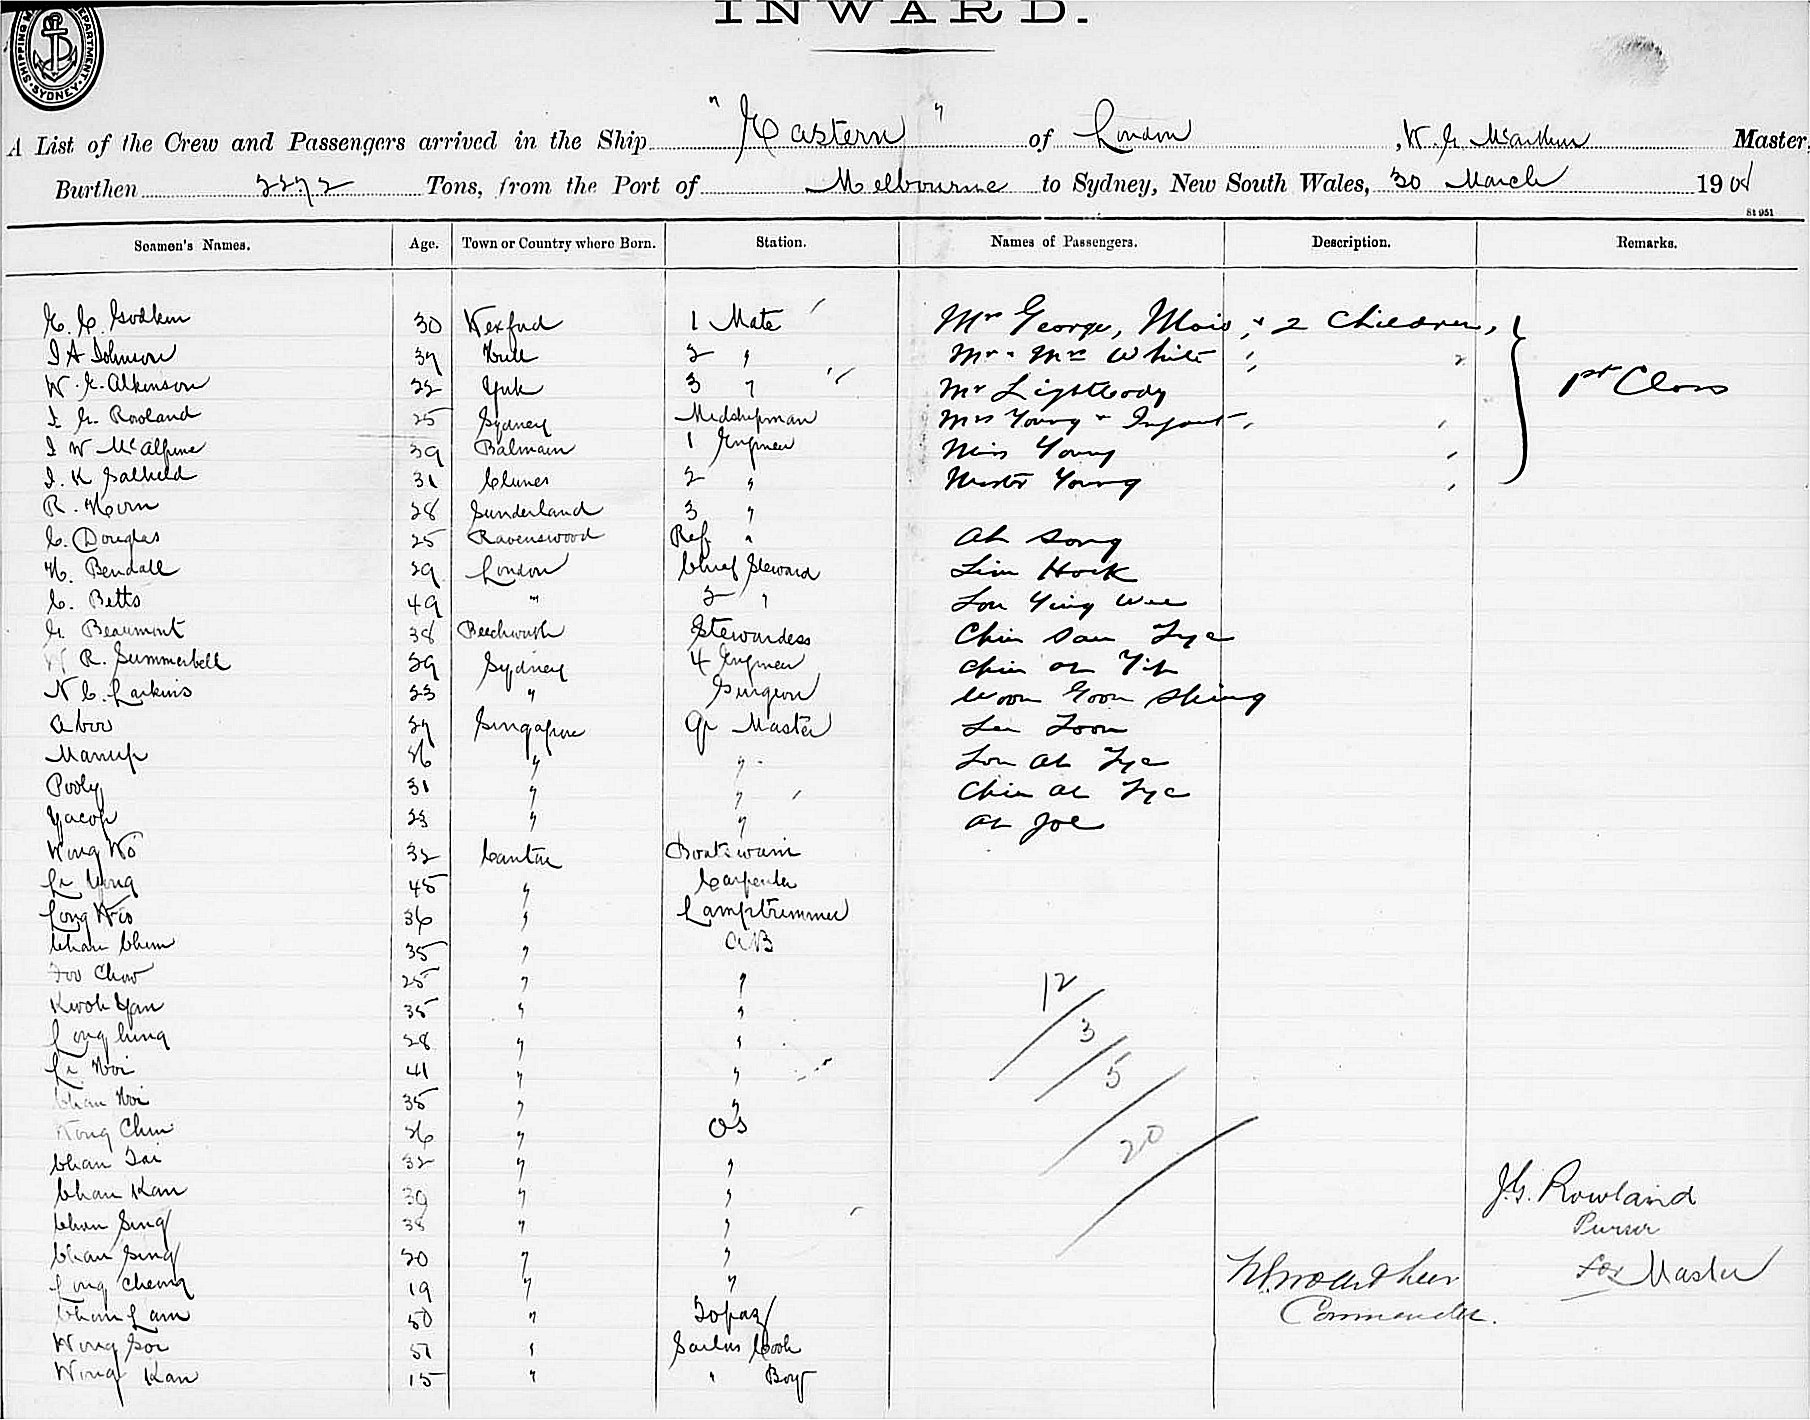 INWARD.
SHIPPING DEPARTMENT SYDNEY
A List of the Crew and Passengers arrived in the Ship "Eastern" of London, W. G. McArthur Master,
Burthen Tons, from the Port of Melbourne to Sydney, New South Wales, 30 March 190
St 951
Seamen's Names. Age. Town or Country where Born. Station. Names of Passengers. Description. Remarks.
30 Wexford 1 Mate Mrs George, & 2 Children,
I A Johnson Hull 2 " Mr & Mrs White "
W. G. Atkinson 22 York 3 " Mr Lightbody 1st Class
I. G. Rowland 25 Sydney Midshipman Mrs Young & Infant "
I W McAlpine 39 Balmain 1 Engineer Miss Young "
I. K Salkeld 31 Clunes 2 " Master Young "
R. Horn 28 Sunderland 3 "
C. Douglas 25 Ravenswood Ref " Ah Song
H. Bendall 29 London Chief Steward Lim Hock
C. Betts 49 " 2 " Lou Ying Wee
G. Beaumont 38 Beechworth Stewardess Chin Sau Tye
R. Summerbell 29 Sydney 4 Engineer Chin Ah Yip
N C. Larkins 23 " Surgeon Woon Goon Shing
Aboo 27 Singapore Qr Master Lee Loon
Manup 26 " " Lou Ah Tye
Pooly 31 " " Chin Ah Tye
Yacop 23 " " Ah Joe
Wong Wo 32 Canton Boatswain
45 " Carpenter
36 " Lamptrimmer
Chan Chun 35 " AB
Foo Chow 25 " "
Kwok Yan 35 " "
28 " "
41 " "
Chan Hoi 35 " "
Wong Chun 26 " OS
Chan Tai 32 " "
Chan Kan 39 " "
Chan Sing 38 " "
Chan Sing 20 " "
Long Cheong 19 " "
Chan Lam 50 " Topaz
Wong Soi 51 " Sailors Cook
Wong Kan 15 " " Boy
12
3
5
20
J.G. Rowland
Purser
for Master
W. G. McArthur
Commander.